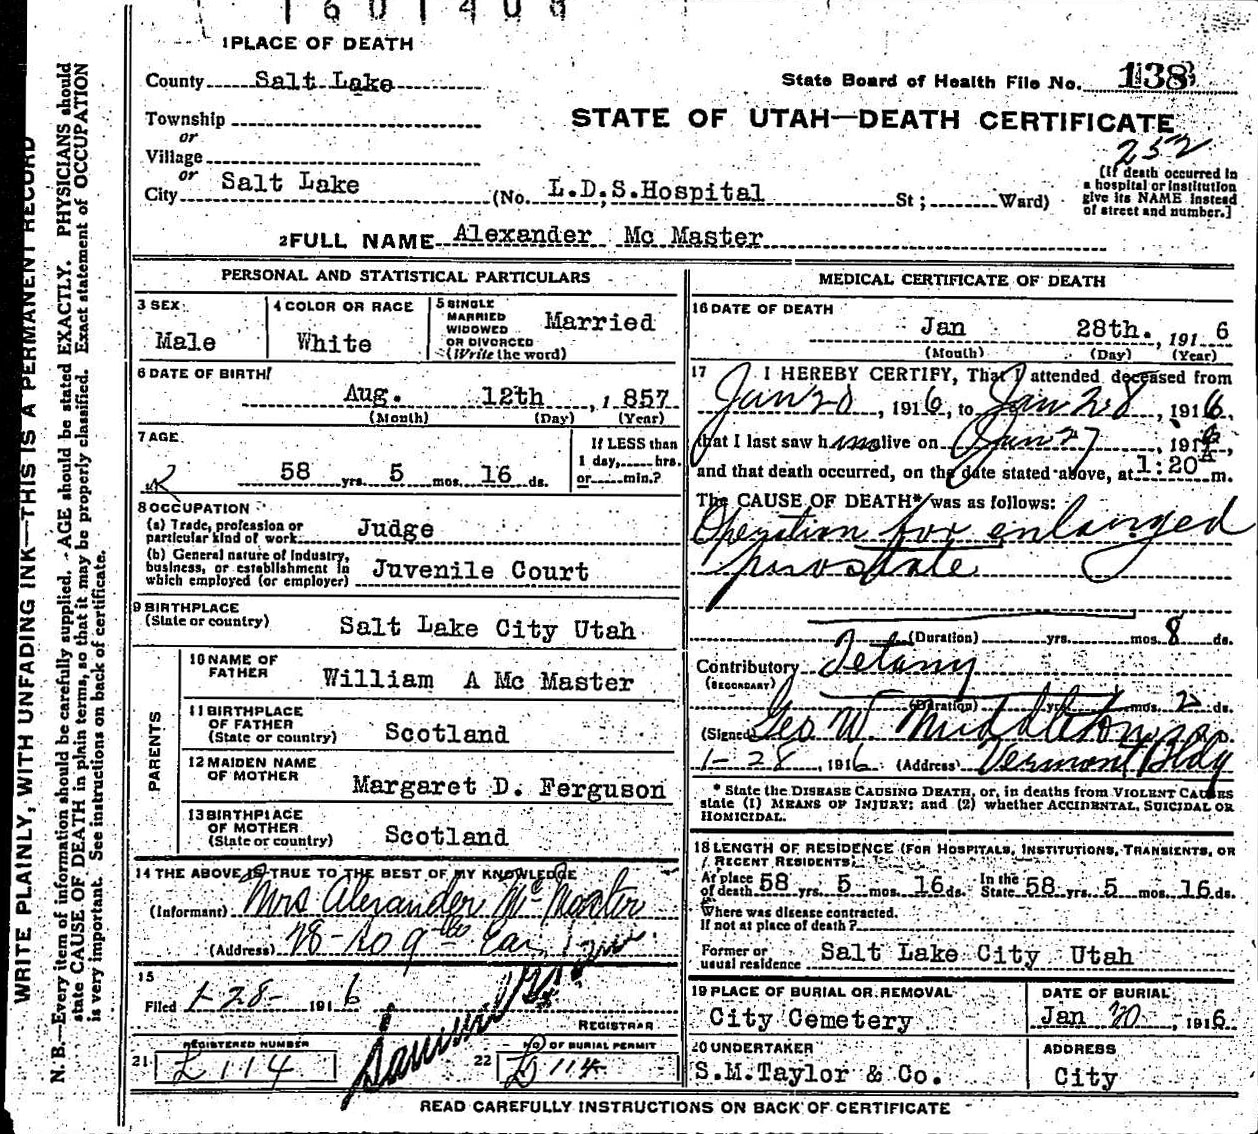 1601403
1 PLACE OF DEATH
County Salt Lake
State Board of Health File No. 138
Township
or
Village
or
STATE OF UTAH—DEATH CERTIFICATE
252
City Salt Lake (No. L.D.S. Hospital St; Ward)
(If death occurred in
a hospital or institution
give its NAME instead
of street and number.]
2 FULL NAME Alexander Mc Master
PERSONAL AND STATISTICAL PARTICULARS
3 SEX
Male
4 COLOR OR RACE
White
5 SINGLE
MARRIED
WIDOWED
OR DIVORCED
(Write the word)
Married
6 DATE OF BIRTH
Aug. 12th, 1857
(Month) (Day) (Year)
7 AGE
58 yrs. 5 mos. 16 ds.
If LESS than
1 day, hrs.
or min.?
8 OCCUPATION
(a) Trade, profession or
particular kind of work Judge
(b) General nature of industry,
business, or establishment in
which employed (or employer) Juvenile Court
9 BIRTHPLACE
(State or country) Salt Lake City Utah
PARENTS
10 NAME OF
FATHER William A Mc Master
11 BIRTHPLACE
OF FATHER
(State or country) Scotland
12 MAIDEN NAME
OF MOTHER Margaret D. Ferguson
13 BIRTHPLACE
OF MOTHER
(State or country) Scotland
14 THE ABOVE IS TRUE TO THE BEST OF MY KNOWLEDGE
(Informant) Mrs Alexander Mc Master
(Address)
15
Filed 1-28- 1916
REGISTRAR
REGISTERED NUMBER
21 114
NO OF BURIAL PERMIT
22 114
MEDICAL CERTIFICATE OF DEATH
16 DATE OF DEATH
Jan 28th., 1916
(Month) (Day) (Year)
17 I HEREBY CERTIFY, That I attended deceased from
Jan 20, 1916, to Jan 28, 1916,
that I last saw him alive on Jan 27, 1916,
and that death occurred, on the date stated above, at 1:20 A m.
The CAUSE OF DEATH* was as follows:
Operation for enlarged
prostate
(Duration) yrs. mos. 8 ds.
Contributory Tetany
(SECONDARY)
(Duration) yrs. mos. 2 ds.
(Signed) Geo W. Middleton M.D.
1-28, 1916 (Address) Vermont Bldg
* State the DISEASE CAUSING DEATH, or, in deaths from VIOLENT CAUSES
state (1) MEANS OF INJURY; and (2) whether ACCIDENTAL, SUICIDAL OR
HOMICIDAL.
18 LENGTH OF RESIDENCE (FOR HOSPITALS, INSTITUTIONS, TRANSIENTS, OR
RECENT RESIDENTS)
At place
of death 58 yrs. 5 mos. 16 ds. In the
State 58 yrs. 5 mos. 16 ds.
Where was disease contracted.
If not at place of death?
Former or
usual residence Salt Lake City Utah
19 PLACE OF BURIAL OR REMOVAL
City Cemetery
DATE OF BURIAL
Jan 30, 1916
20 UNDERTAKER
S.M.Taylor & Co.
ADDRESS
City
READ CAREFULLY INSTRUCTIONS ON BACK OF CERTIFICATE
WRITE PLAINLY, WITH UNFADING INK—THIS IS A PERMANENT RECORD
N. B.—Every item of information should be carefully supplied. AGE should be stated EXACTLY. PHYSICIANS should
state CAUSE OF DEATH in plain terms, so that it may be properly classified. Exact statement of OCCUPATION
is very important. See instructions on back of certificate.